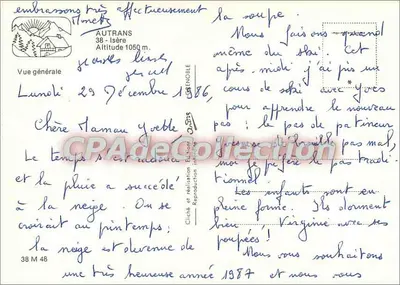 embrassons très affectueusement
AUTRANS
38 - Isère
Altitude 1050 m.
Vue générale
Lundi 29 Décembre 1986,
Chère Maman Yvette
Le temps s'est radouci
et la pluie a succédé
à la neige. On se
croirait au printemps;
la neige est devenue de
38 M 48
Cliché et réalisation
Reproduction
GRENOBLE
la soupe.
Nous faisons quand
même du ski. Cet
après-midi j'ai pris un
cours de ski avec Yves
pour apprendre le nouveau
pas : le pas de patineur
pas mal,
moi je préfère le pas tradi
tionnel.
Les enfants sont en
pleine forme. Ils dorment
bien. Virginie avec ses
poupées!
Nous vous souhaitons
une très heureuse année 1987 et nous vous
CPAdeCollection.com